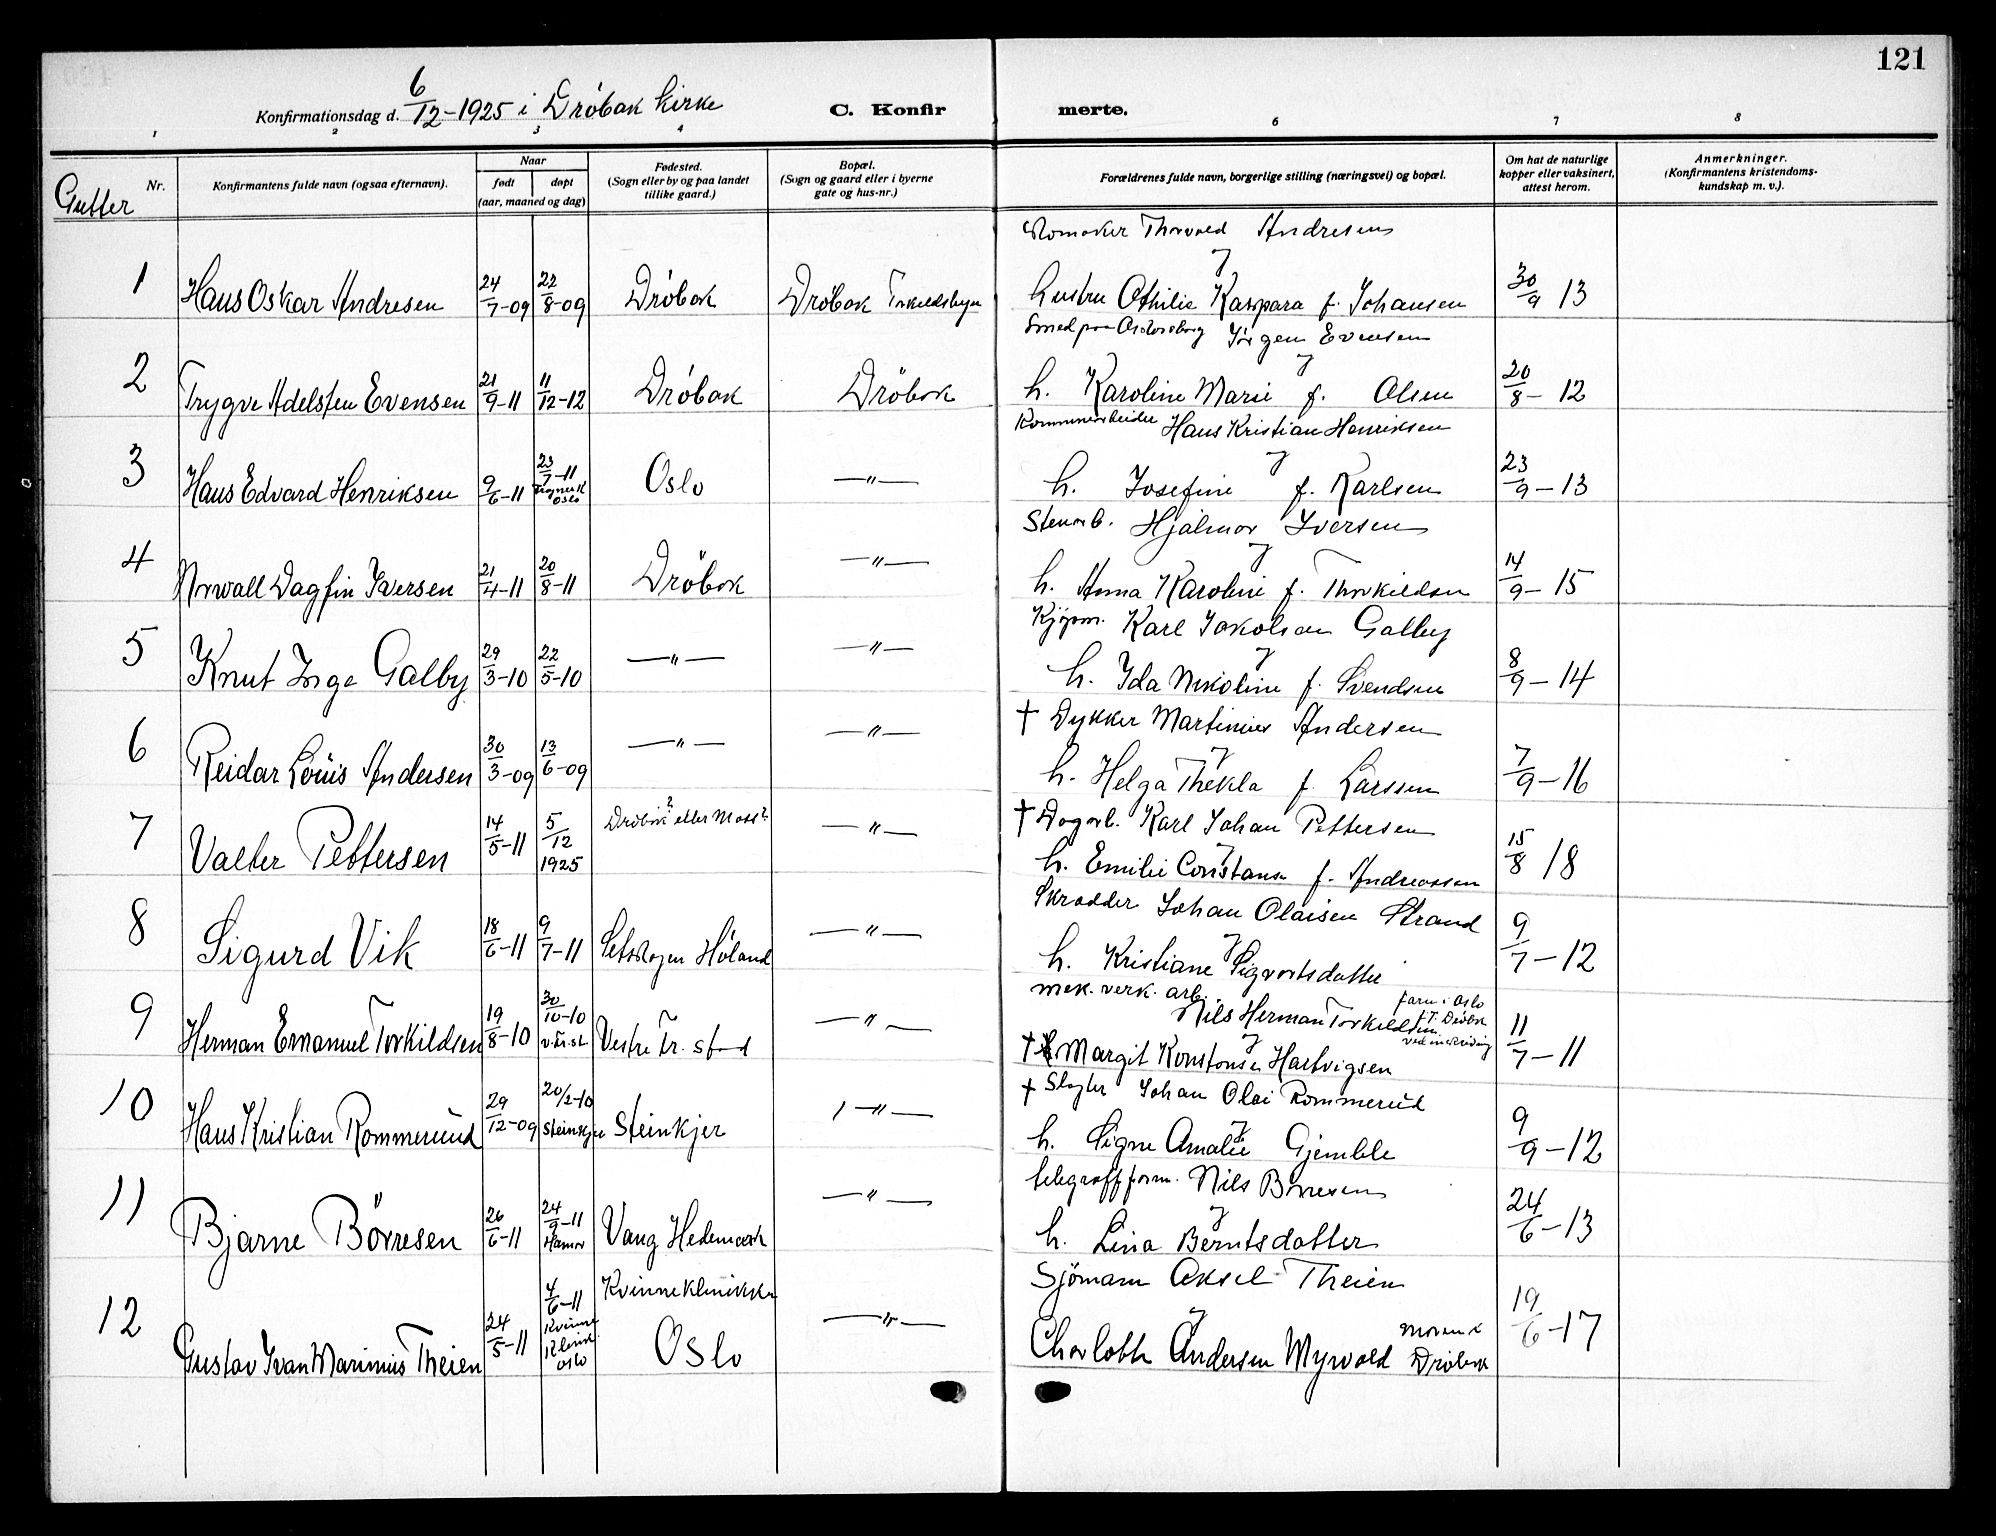 121
Konfirmationsdag d. 6/12-1925 i Drøbak kirke
C. Konfirmerte.
1 2 3 4 6 7 8
Gutter
Nr.
Konfirmantens fulde navn (ogsaa efternavn).
Naar
født døpt
(aar, maaned og dag)
Fødested.
(Sogn eller by og paa landet
tillike gaard.)
Bopæl.
(Sogn og gaard eller i byerne
gate og hus-nr.)
Forældrenes fulde navn, borgerlige stilling (næringsvei) og bopæl.
Om hat de naturlige
kopper eller vaksinert,
attest herom.
Anmerkninger.
(Konfirmantens kristendoms-
kundskap m. v.).
Thorvald Andresen
og
1 Hans Oskar Andresen 24/7-09 22/8-09 Drøbak Drøbak hustru Othilie Kaspara f. Johansen 30/9 13
Smed paa Jörgen Evensen
og
2 Trygve Adelsten Evensen 21/9-11 11/12-12 Drøbak Drøbak h. Karoline Marie f. Olsen 20/8-12
Hans Kristian Henriksen
og
3 Hans Edvard Henriksen 9/6-11 23/7-11 Oslo Oslo —"— h. Josefine f. Karlsen 23/9-13
Stenarb. Hjalmar Iversen
og
4 Norvall Dagfin Iversen 21/4-11 20/8-11 Drøbak —"— h. Anna Karoline f. Thorkildsen 14/9-15
Kjøpm. Karl Jakobsen Galby
og
5 Knut Inge Galby 29/3-10 22/5-10 —"— —"— h. Ida Nikoline f. Svendsen 8/9-14
† Dykker Martinius Andersen
og
6 Reidar Louis Andersen 30/3-09 13/6-09 —"— —"— h. Helga Thekla f. Larssen 7/9-16
† Dagarb. Karl Johan Pettersen
og
7 Valter Pettersen 14/5-11 5/12 1925 Drøbak? eller Moss? —"— h. Emilie Constanse f. Andreassen 15/8 18
Skrædder Johan Olaisen Strand
og
8 Sigurd Vik 18/6-11 9/7-11 Setskogen Høland —"— h. Kristiane Sigvartsdatter 9/7-12
mek. verk. arb. Nils Herman Torkildsen faren i Oslo
og
9 Herman Emanuel Torkildsen 19/8-10 30/10-10 v. Fr.st Vestre Fr. stad —"— † Margit Konstanse Hartvigsen 11/7-11
† Slagter Johan Olai Rommerud
og
10 Hans Kristian Rommerud 29/12-09 20/2-10 Steinkjer Steinkjer —"— h. Signe Amalie Gjemble 9/9-12
telegrafform. Nils Børresen
og
11 Bjarne Börresen 26/6-11 24/9-11 Hamar Vang Hedemark —"— h. Lina Berntsdatter 24/6-13
Sjömann Aksel Theien
og
12 Gustav Ivan Marinius Theien 24/5-11 4/6-11 Kvinne Klinik Oslo Kvinneklinikken Oslo —"— Charlotte Andersen Myrvold moren i Drøbak 19/6-17